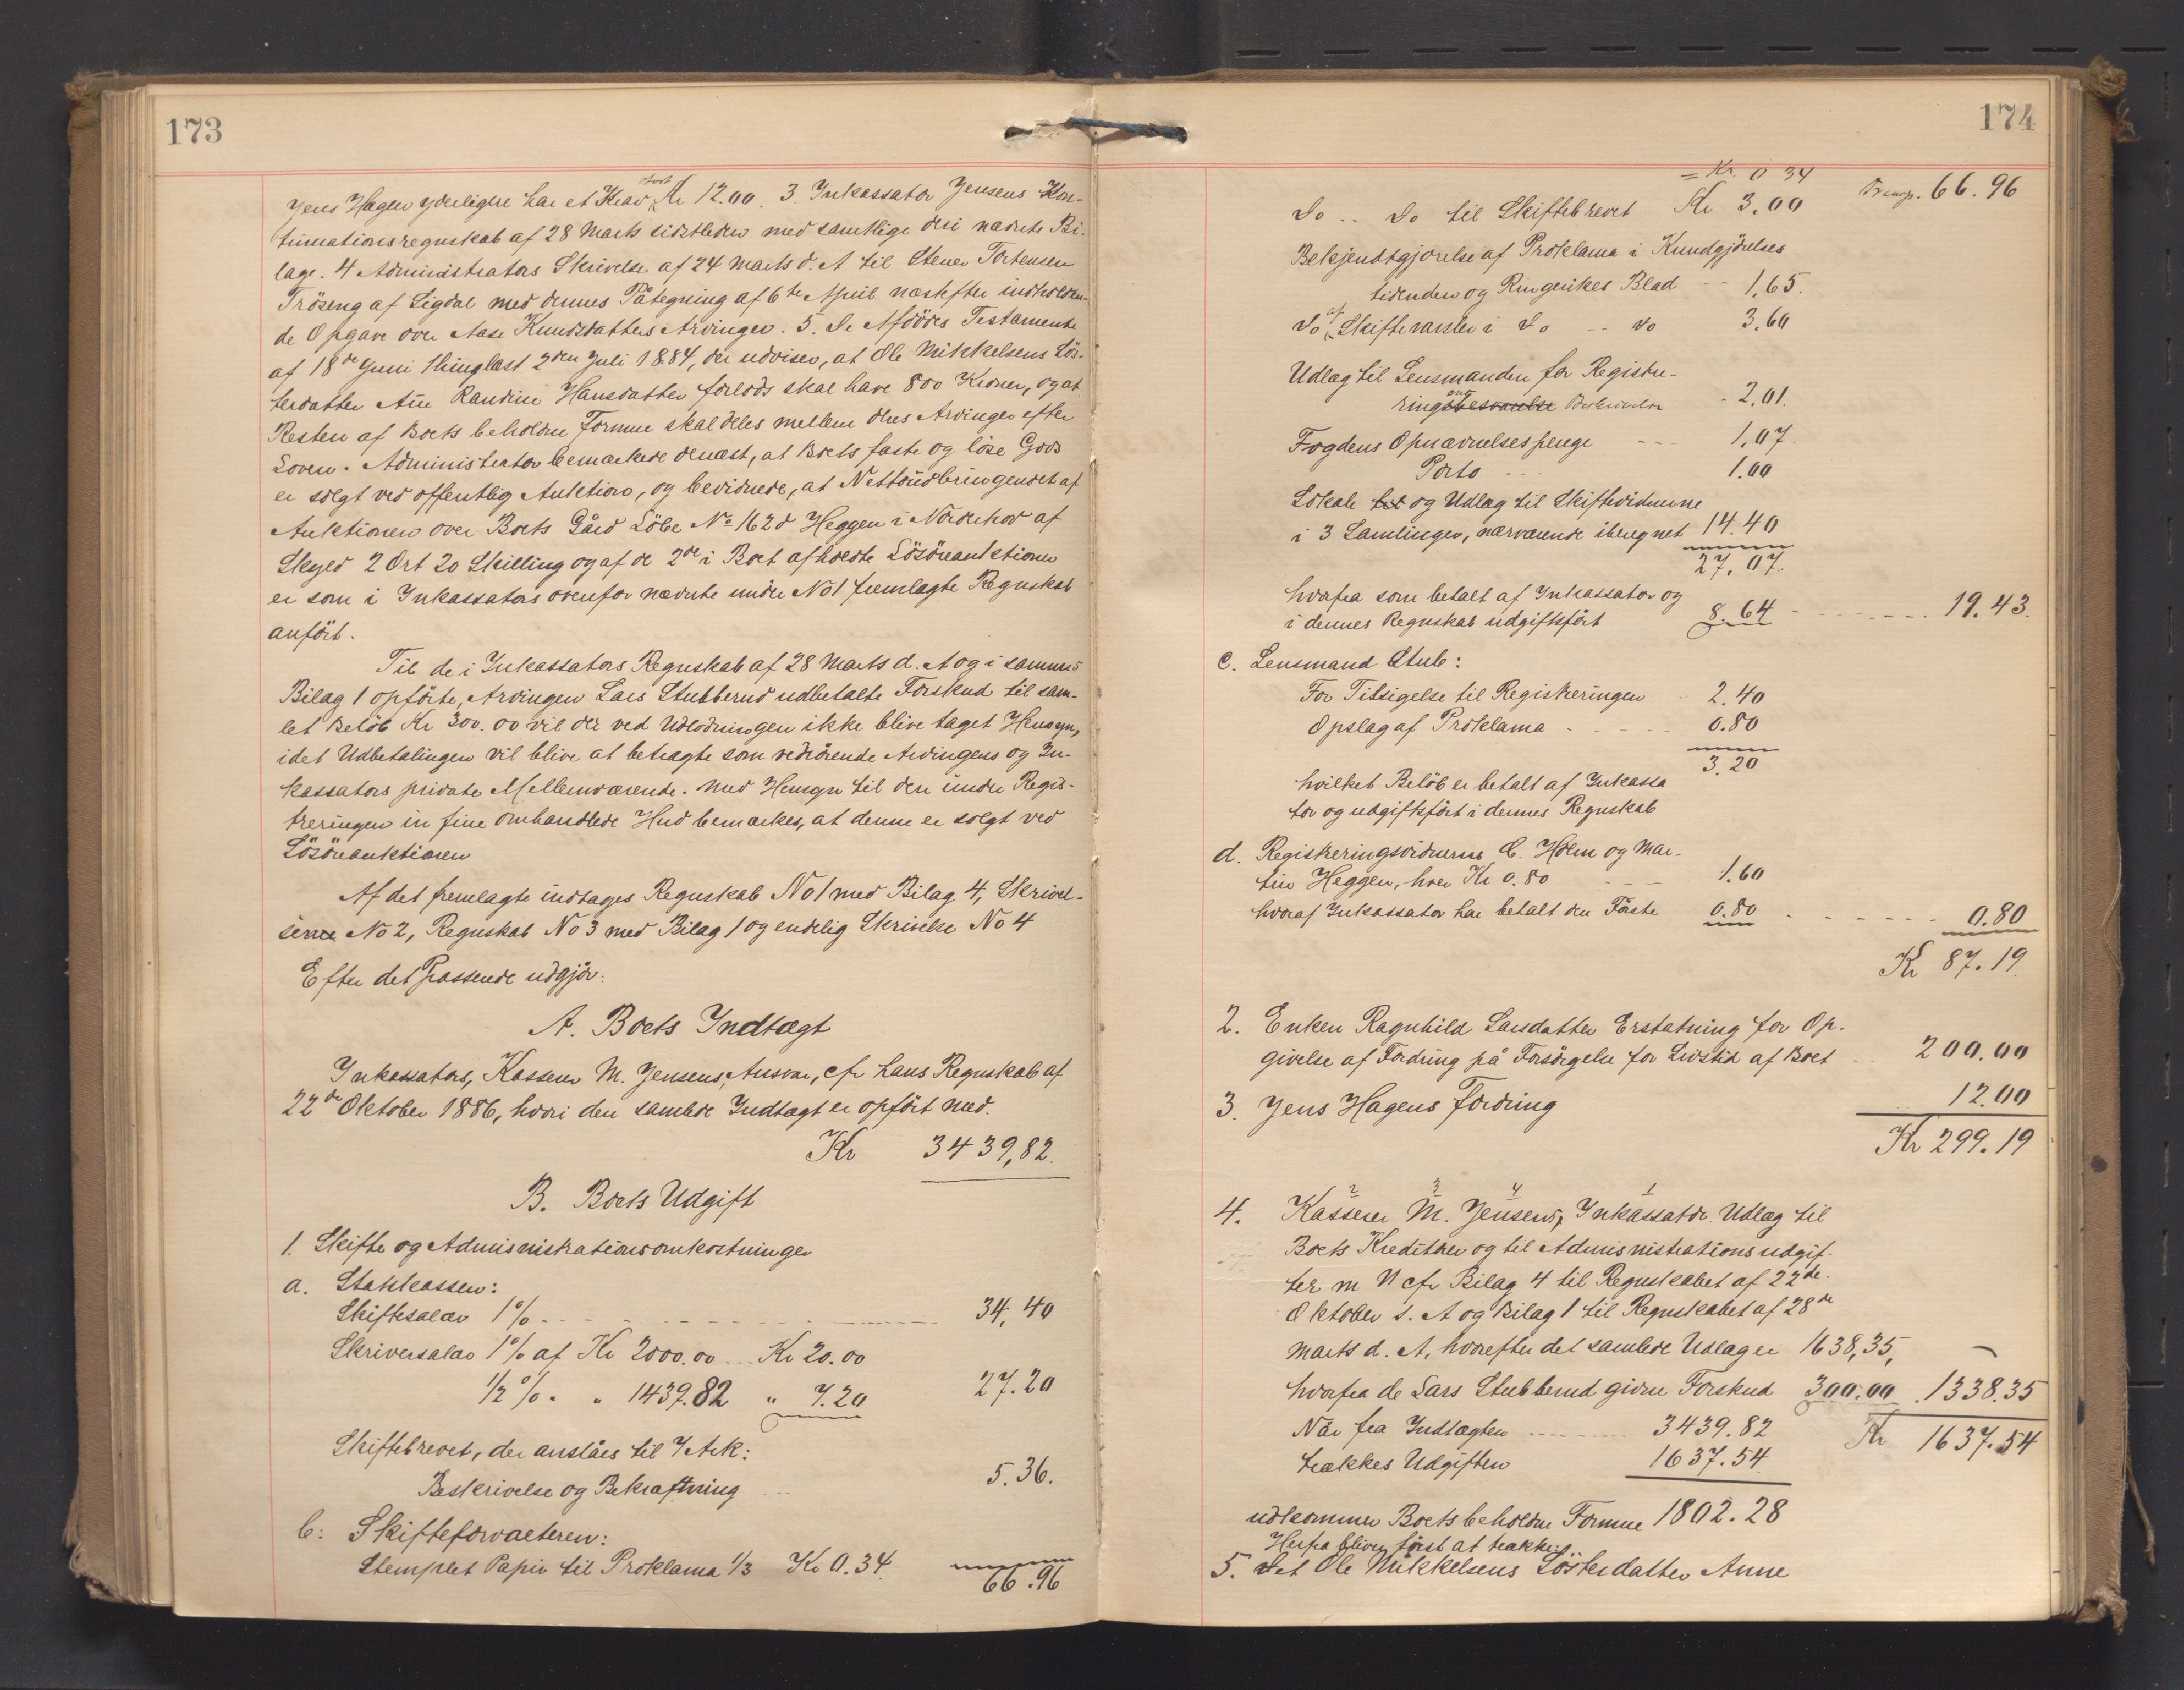 173
Jens Hagen yderligere har et Krav stort Kr 12.00. 3. Inkassator Jensens Kon-
tinuationsregnskab af 28 Marts sidstleden med samtlige deri nævnte Bi-
lage. 4 Administrators Skrivelse af 24 Marts d. A til Stener Tortensen
Tröseng af Sigdal med dennes Påtegning af 6te April næstefter indholden-
de Opgave over Aase Knudsdatters Arvinger. 5. De Afdödes Testamente
af 18de Juni thinglæst 2den Juli 1884, der udviser, at Ole Mikkelsens Sös-
terdatter Ane Randine Hansdatter forlods skal have 800 Kroner, og at
Resten af Boets beholdne Formue skal deles mellem deres Arvinger efter
Loven. Administrator bemærkede dernæst, at Boets faste og löse Gods
er solgt ved offentlig Auktion, og bevidnede, at Nettoudbringendet af
Auktionen over Boets Gård Löbe No 162d Heggen i Norderhov af
Skyld 2 Ort 20 Skilling og af de 2de i Boet afholdte Lösöreauktioner
er som i Inkassators ovenfor nævnte under No 1 fremlagte Regnskab
anfört.
Til de i Inkassators Regnskab af 28 Marts d. A og i sammes
Bilag 1 opförte, Arvingen Lars Stubberud udbetalte Forskud til sam-
let Belöb Kr 300.00 vil der ved Udlodningen ikke blive taget Hensyn,
idet Udbetalingen vil blive at betragte som vedrörende Arvingens og In-
kassators private Mellemværende. Med Hensyn til den under Regis-
treringen in fine omhandlede Hud bemærkes, at denne er solgt ved
Lösöreauktionen
Af det fremlagte indtages Regnskab No 1 med Bilag 4, Skrivel-
serne No 2, Regnskab No 3 med Bilag 1 og endelig Skrivelse No 4
Efter det Passerede udgjör:
A. Boets Indtægt
Inkassators, Kasserer M. Jensens, Ansvar, cfr hans Regnskab af
22de Oktober 1886, hvori den samlede Indtægt er opfört med.
Kr 3439,82.
B. Boets Udgift
1. Skifte og Administrationsomkostninger
a. Statskassen:
Skiftesalær 1% 34,40
Skriversalær 1% af Kr 2000.00 Kr 20.00
1/2 % " " 1439.82 " 7.20 27.20
Skiftebrevet, der anslåes til 7 Ark:
Beskrivelse og Bekræftning 5.36.
b: Skifteforvalteren:
Stemplet Papir til Proklama 1/3 Kr 0.34 66.96
174
= Kr. 0 34 Transp. 66.96
Do .. Do til Skiftebrevet Kr 3.00
Bekjendtgjörelse af Proklama i Kundgjörelses
tidenden og Ringerikes Blad 1,65.
Do af Skiftevarsler i Do .. Do 3.60
Udlæg til Lensmanden for Registre-
ringsbesværelse 2.01.
Fogdens Opnævnelsespenge 1,07.
Porto 1.00
Lokale til og Udlæg til Skiftevidnerne
i 3 Samlinger, nærværende iberegnet 14.40
27,07.
hvorfra som betalt af Inkassator og
i dennes Regnskab udgiftsfört 8.64 19.43.
c. Lensmand Stub:
For Tilsigelse til Registreringen 2.40
Opslag af Proklama 0.80
3.20
hvilket Belöb er betalt af Inkassa
tor og udgiftsfört i dennes Regnskab
d. Registreringsvidnerne C. Holm og Mar-
tin Heggen, hver Kr 0.80 1.60
hvoraf Inkassator har betalt den Förste 0.80 0.80
Kr 87.19
2. Enken Ragnhild Larsdatter Erstatning for Op-
givelse af Fordring på Forsörgelse for Livstid af Boet 200.00
3. Jens Hagens Fordring 12.00
Kr 299.19
2 3 4 1
4. Kasserer M. Jensens, Inkassator Udlæg til
Boets Kreditorer og til Administrationsudgif-
ter m V cfr Bilag 4 til Regnskabet af 22de
Oktober s. A og Bilag 1 til Regnskabet af 28de
Marts d. A, hvorefter det samlede Udlæg er 1638,35,
hvorfra de Lars Stubberud givne Forskud 300.00 1338.35
Når fra Indtægten 3439.82 Kr 1637.54
trækkes Udgiften 1637.54
udkommer Boets beholdne Formue 1802.28
Herfra bliver först at trække:
5. Det Ole Mikkelsens Sösterdatter Anne